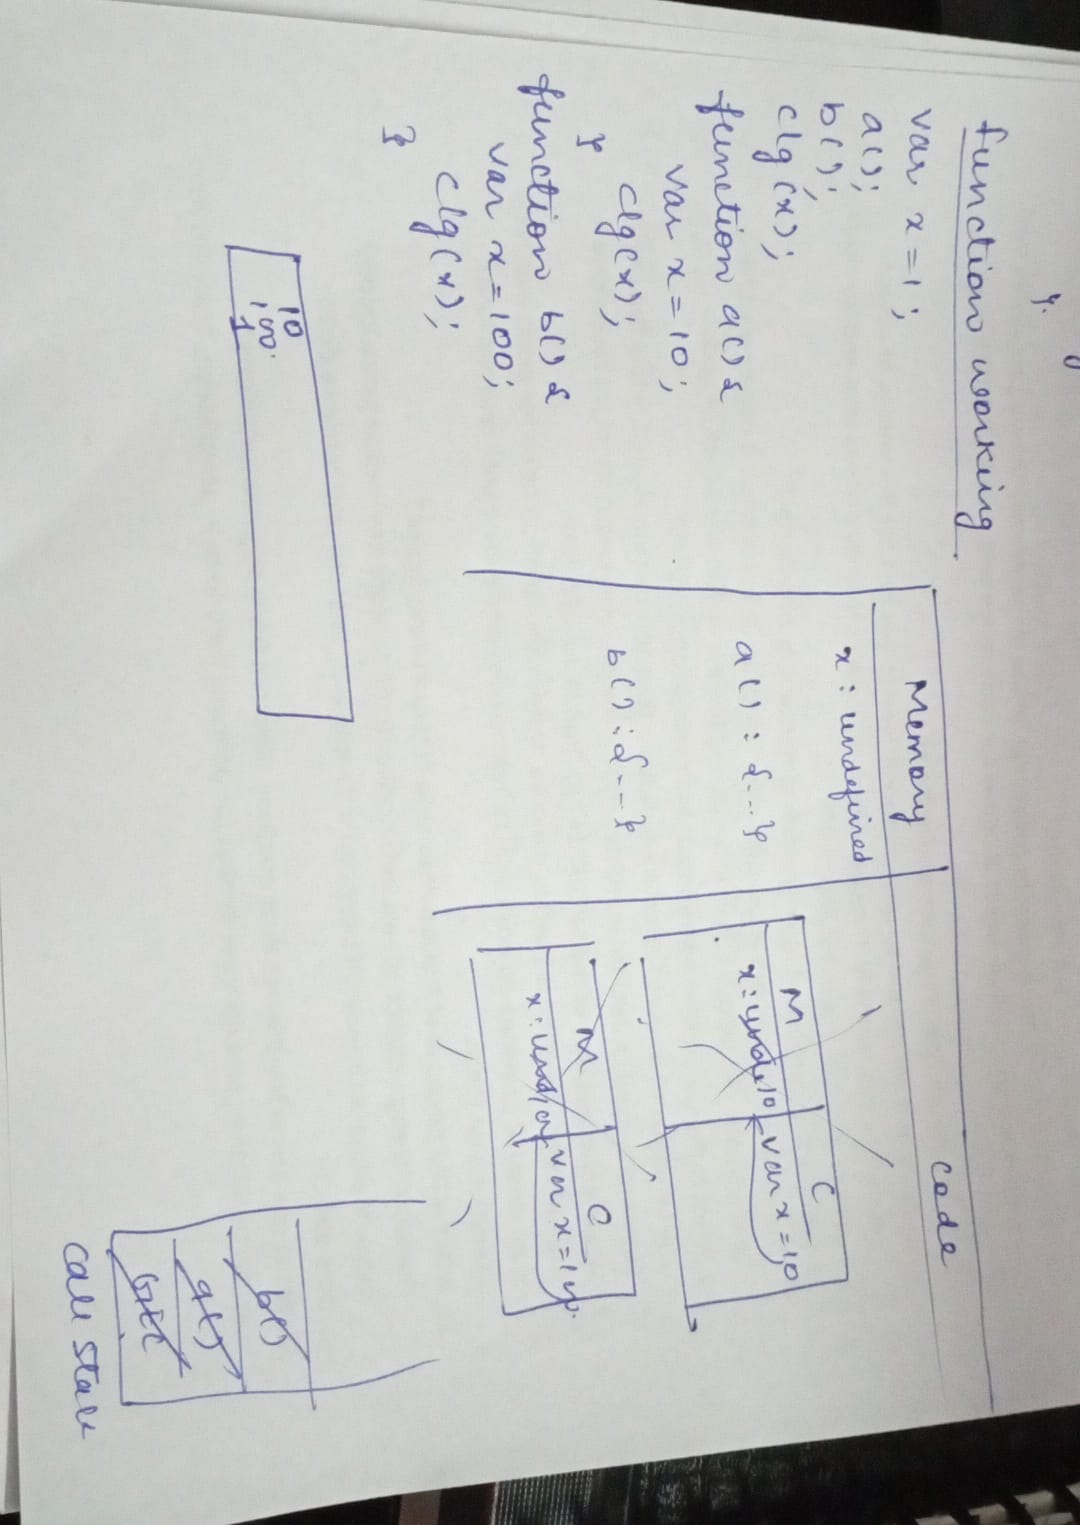 }.
function working
var x = 1;
a();
b();
clg(x);
function a() {
var x = 10;
clg(x);
}
function b() {
var x = 100;
clg(x);
}
10
100
1
Memory
code
x : undefined
a() : {...}
b() : {...}
M
C
x : und 10
var x = 10
M
C
x : und
var x = 100
b()
a()
GEC
call stack